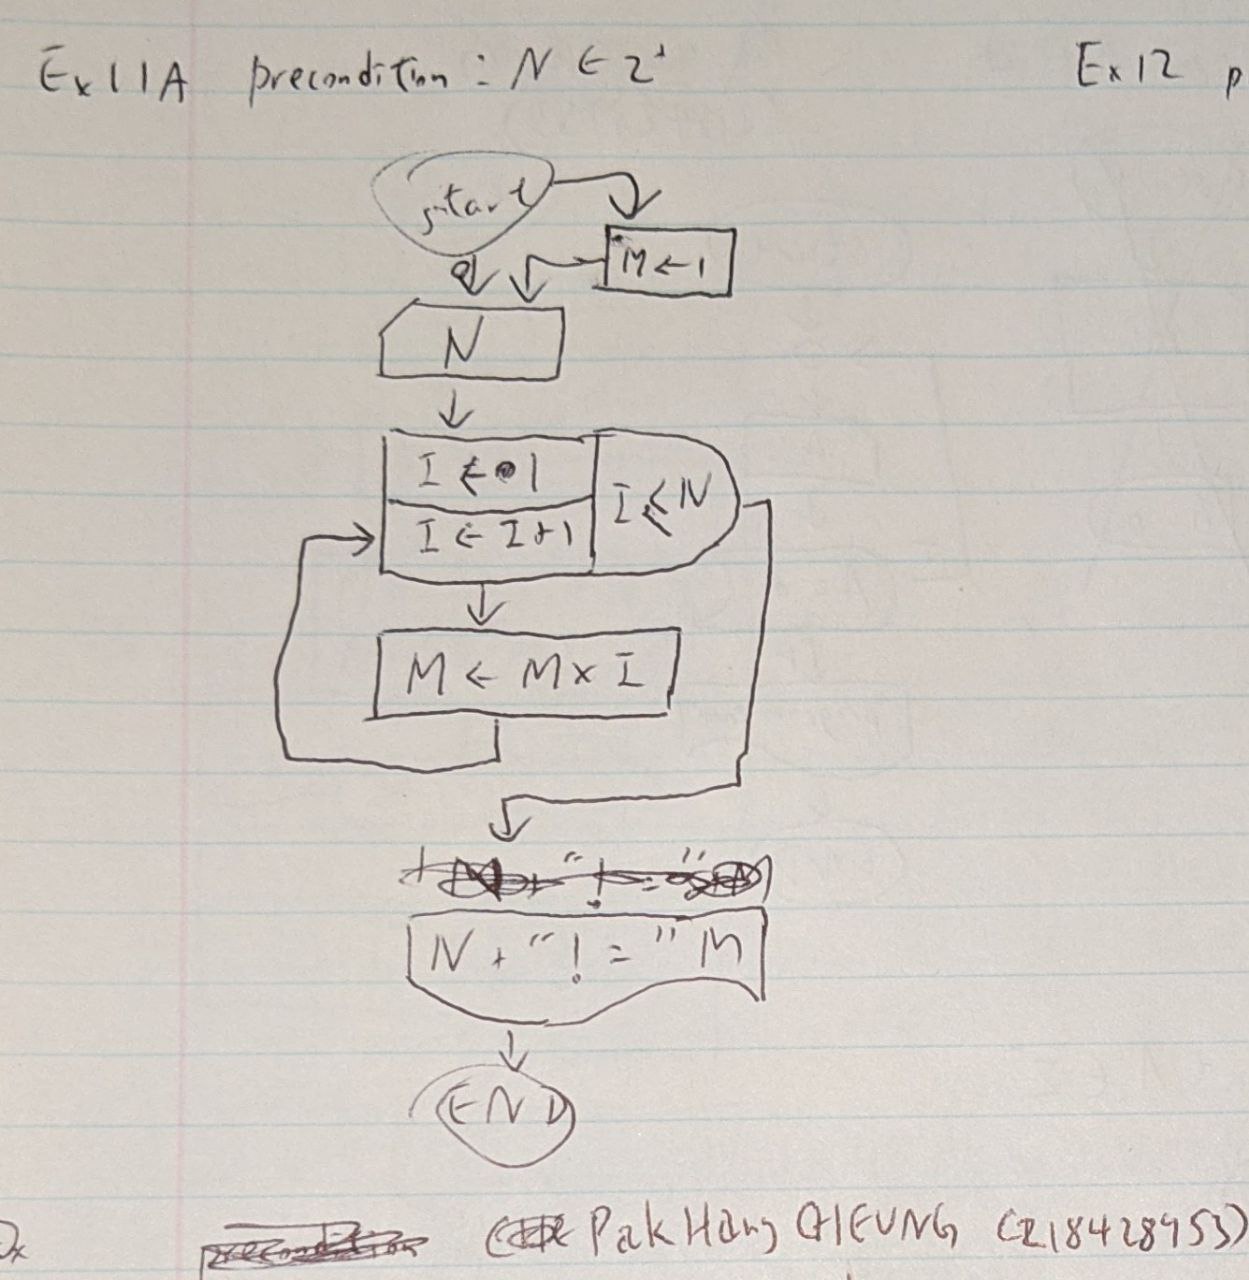 Ex11A precondition : N ∈ Z⁺
Ex12 p
start
M ← 1
N
I ← 1
I ≤ N
I ← I+1
M ← M x I
N + "! = " M
END
Pak Hang CHEUNG (218428953)